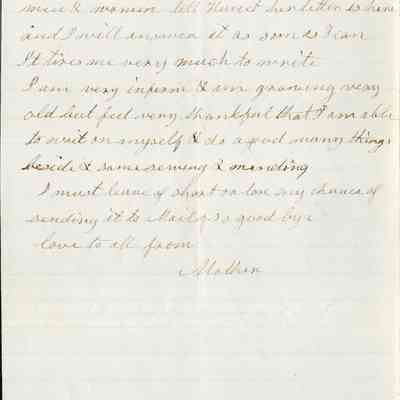 men & women tell Harriet her letter is here
and I will answer it as soon as I can
It tires me very much to write
I am very infirm & am growing very
old but feel very thankful that I am able
to wait on myself & do a good many things
beside & some sewing & mending
I must leave of short or lose my chance of
sending it to Mail so good bye
love to all from
Mother